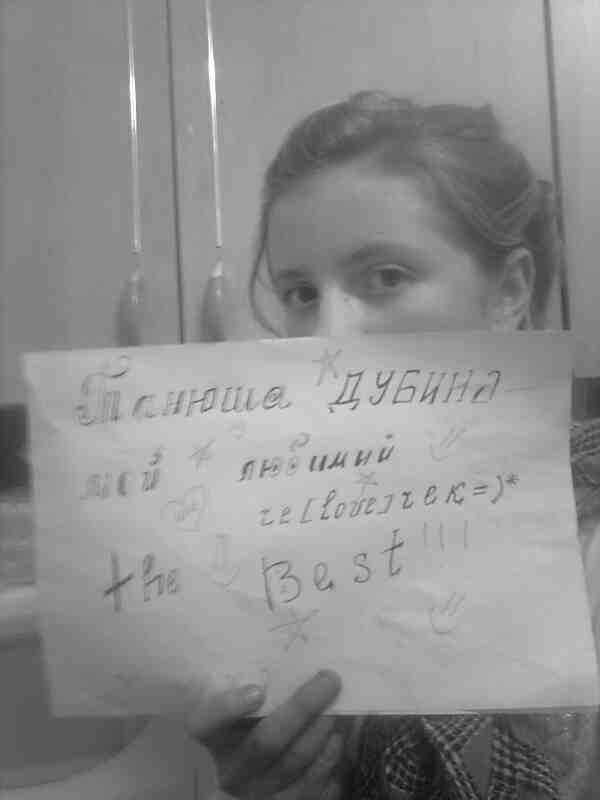 Танюша ДУБИНА
мой любимий
че[love]чек=)*
the Best!!!